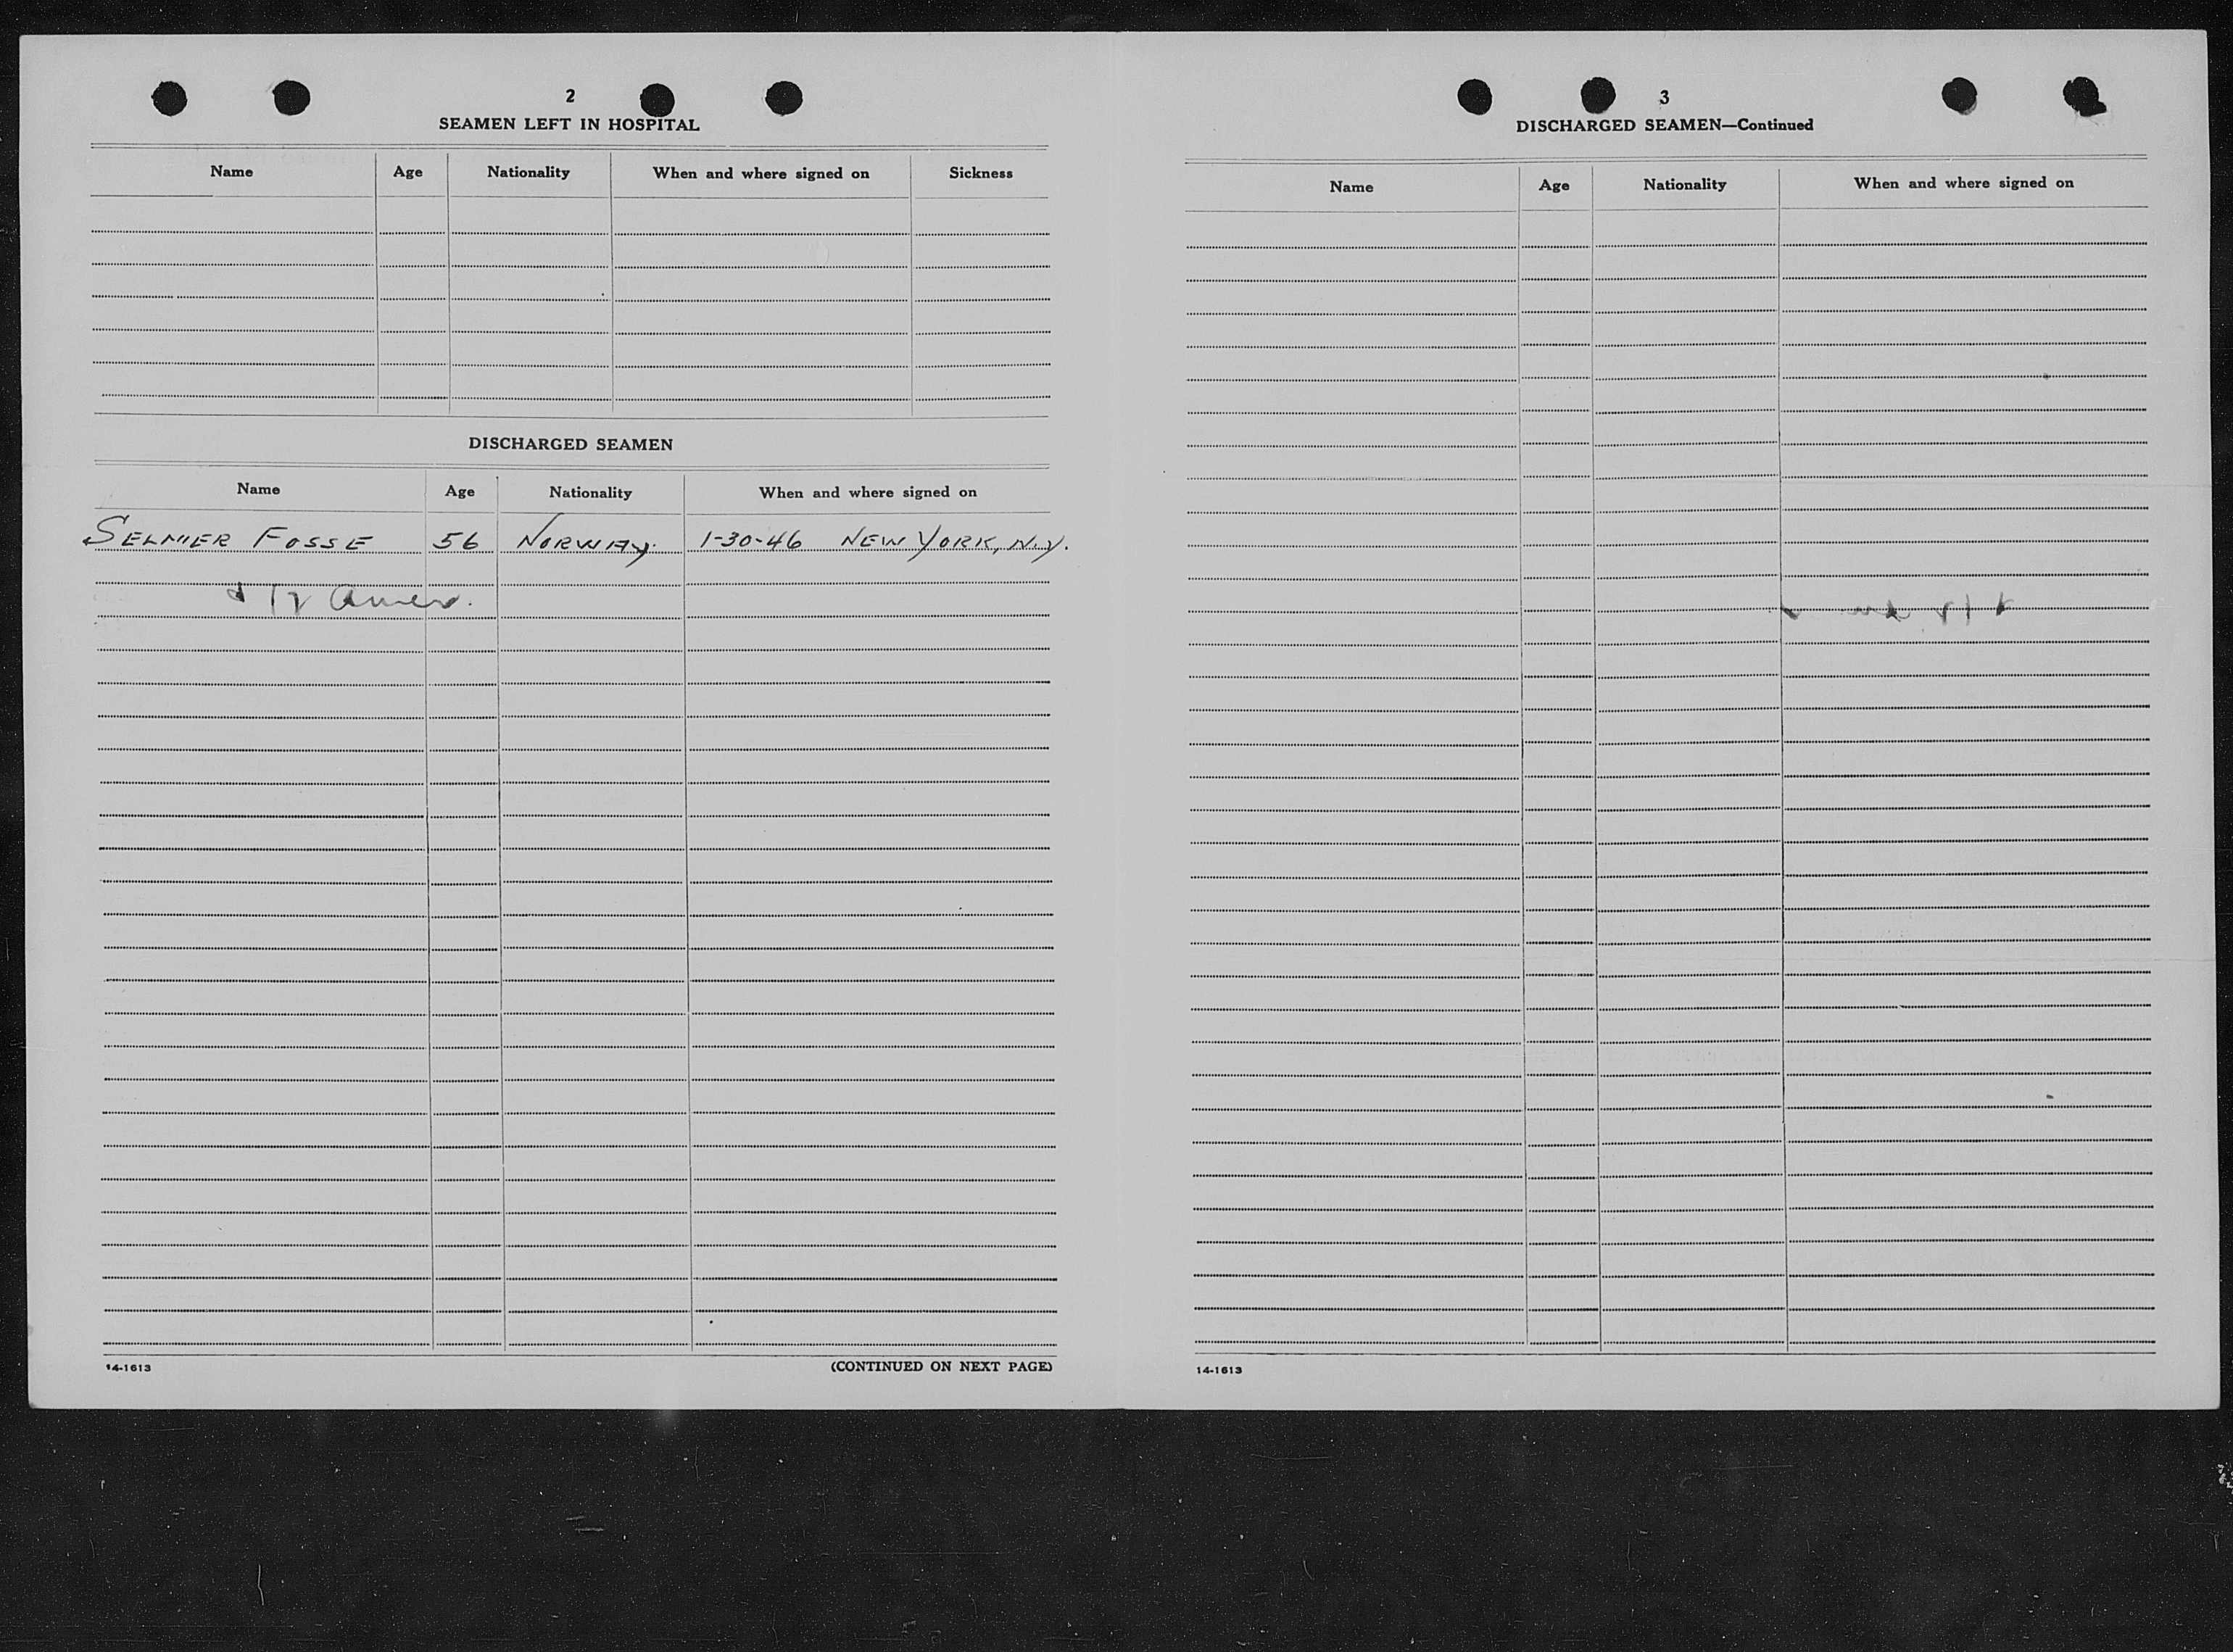 2
SEAMEN LEFT IN HOSPITAL
Name Age Nationality When and where signed on Sickness
DISCHARGED SEAMEN
Name Age Nationality When and where signed on
SELMER FOSSE 56 NORWAY 1-30-46 NEW YORK, N.Y.
Amer.
14-1613 (CONTINUED ON NEXT PAGE)
3
DISCHARGED SEAMEN—Continued
Name Age Nationality When and where signed on
14-1613